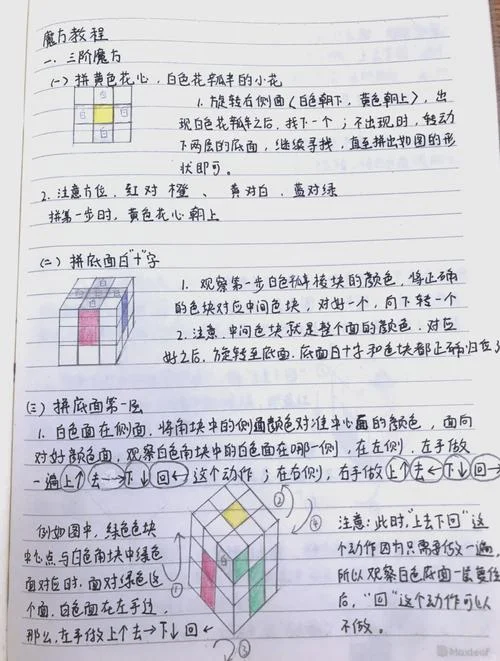 魔方教程
一、三阶魔方
(一) 拼黄色花心，白色花瓣的小花
白
白 白
白
1. 旋转右侧面（白色朝下，黄色朝上），出
现白色花瓣之后，找下一个；不出现时，转动
下两层的底面，继续寻找，直至拼出如图的形
状即可。
2. 注意方位，红对橙、黄对白、蓝对绿
拼第一步时，黄色花心朝上
(二) 拼底面白"十"字
1. 观察第一步白色棱块的颜色，将正确
的色块对应中间色块，对好一个，向下转一个
2. 注意，中间色块就是整个面的颜色，对应
好之后，旋转至底面，底面白十字和色块都正确归位
(三) 拼底面第一层
1. 白色面在侧面，将角块中的侧面颜色对准中心面的颜色，面向
对好颜色面，观察白色角块中的白色面在哪一侧，在左侧，左手做
一遍上↑去→下↓回← 这个动作；在右侧，右手做上↑去←下↓回→
例如图中，绿色色块
中心点与白色角块中绿色
面对应时，面对绿色这
个面，白色面在左手边，
那么，左手做上个去→下↓回←
① ② ③ ④
注意：此时，"上去下回"这
个动作因为只需要做一遍，
所以观察白色底面一层复位
后，"回"这个动作可以
不做。
Maxleaf